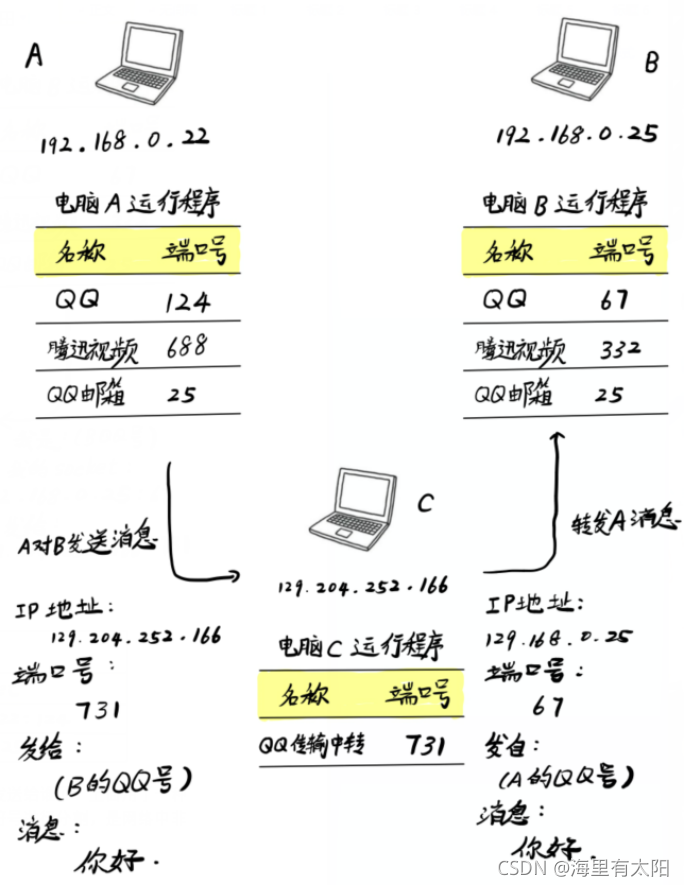 A
B
192.168.0.22
192.168.0.25
电脑A运行程序
名称 端口号
QQ 124
腾迅视频 688
QQ邮箱 25
电脑B运行程序
名称 端口号
QQ 67
腾迅视频 332
QQ邮箱 25
A对B发送消息
IP地址:
129.204.252.166
端口号:
731
发给:
(B的QQ号)
消息:
你好.
C
129.204.252.166
电脑C运行程序
名称 端口号
QQ传输中转 731
转发A消息
IP地址:
129.168.0.25
端口号:
67
发自:
(A的QQ号)
消息:
你好.
CSDN @海里有太阳